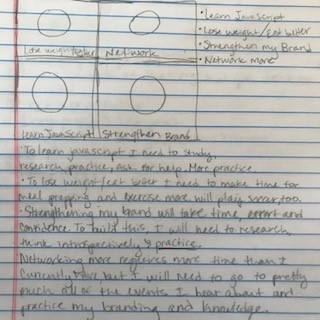 • Learn JavaScript
• Lose weight/Eat better
• Strengthen my Brand
• Network more
Lose weight/ Network
Learn JavaScript Strengthen Brand
• To learn javascript I need to study,
research, practice, ask for help. More practice
• To lose weight/eat better I need to make time for
meal prepping and exercise more. will play soccer too.
• Strengthening my brand will take time, effort and
confidence. To build this, I will need to research,
think introspectively & practice.
Networking more requires more time than I
currently have but I will need to go to pretty
much all of the events I hear about and
practice my branding and knowledge.